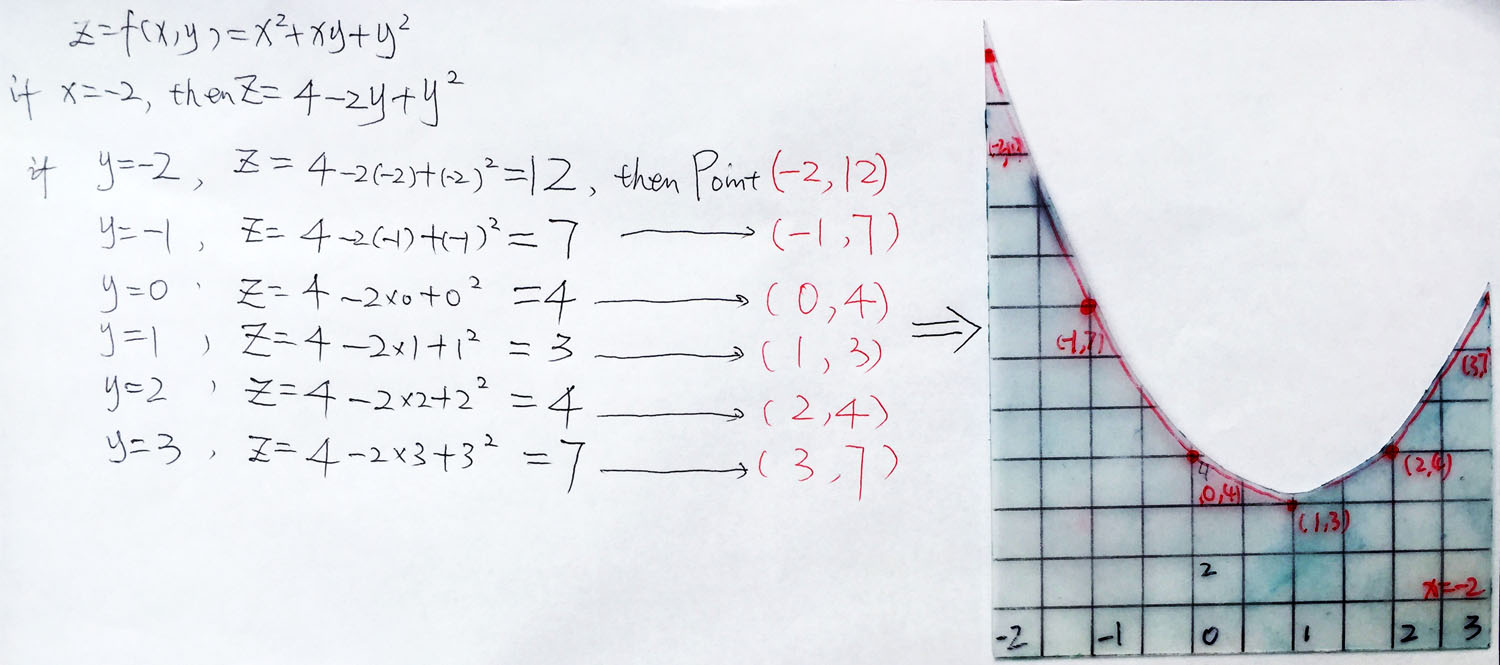 z=f(x,y)=x²+xy+y²
if x=-2, then z=4-2y+y²
if y=-2, z=4-2(-2)+(-2)²=12, then Point (-2,12)
y=-1, z=4-2(-1)+(-1)²=7 → (-1,7)
y=0, z=4-2×0+0²=4 → (0,4)
y=1, z=4-2×1+1²=3 → (1,3)
y=2, z=4-2×2+2²=4 → (2,4)
y=3, z=4-2×3+3²=7 → (3,7)
⇒
(-1,7)
(3,7
4
(0,4)
(2,4)
(1,3)
2
x=-2
-2 -1 0 1 2 3